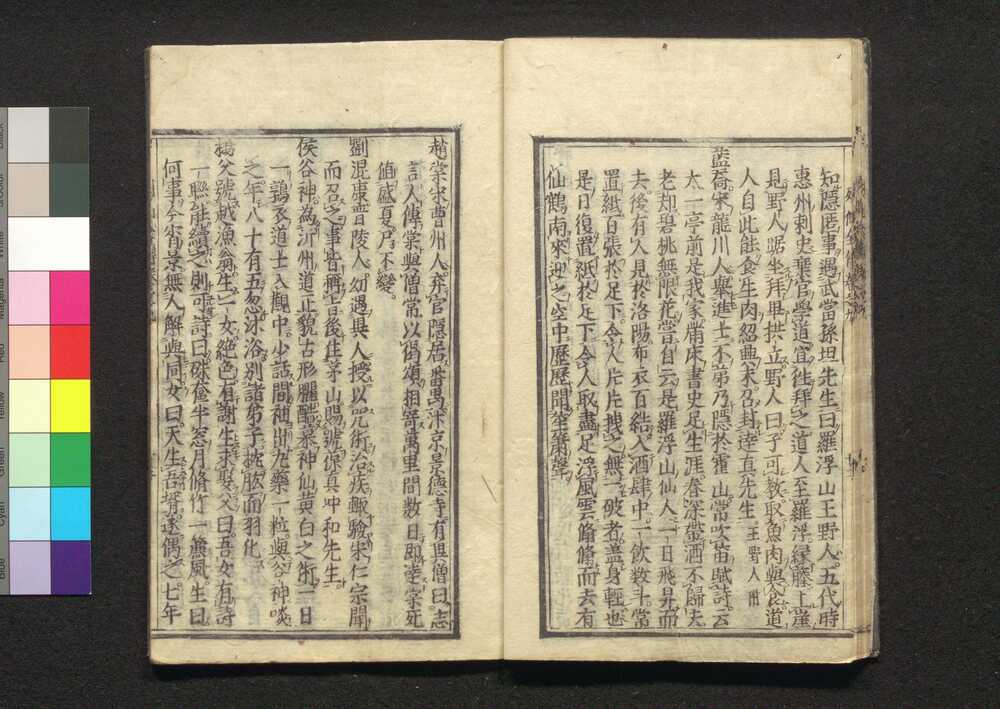 知隱匿事遇武當孫坦先生曰羅浮山王野人五代時
惠州刺史棄官學道宜徃拜之道人至羅浮縁藤上崖
見野人踞坐拜畢拱立野人曰子可教取魚肉與食道
人自此能食生肉紹興末召封達真先生 王野人附
藍喬宋龍川人舉進士不第乃隱於霍山常吹笛賦詩云
太一亭前是我家滿床書史足生涯春深帶酒不歸去
老却碧桃無限花嘗自云是羅浮山仙人一日飛昇而
去後有人見於洛陽布衣百結入酒肆中一飲数斗常
置紙百張於足下令人片片拽之無一破者盖身輕也
是日復置紙於足下令人取盡足浮風雲翛翛而去有
仙鶴南來迎之空中歴歴聞笙簫聲
趙棠宋曹州人弃官隱居番禺汴京景德寺有異僧曰志
言人傳棠與僧常以偈頌相寄萬里間数日即達棠死
值盛夏尸不變
劉混康晋陵人幼遇異人授以咒術治疾輒驗宋仁宗聞
而召之事皆稱旨後住茅山賜號保真冲和先生
侯谷神為沂州道正貌古形臞酷慕神仙黄白之術一日
一鶉衣道士入觀中少話間袖出九藥一粒與谷神啖
之年八十有五忽沐浴別諸弟子枕肱而羽化
楊父號越漁翁生一女絶色有謝生求娶父曰吾女有詩
一聯能續之則可詩曰珠簾半窓月脩竹一簾風生曰
何事今宵景無人解與同女曰天生吾壻遂偶之七年